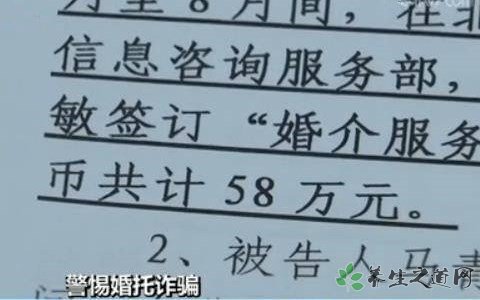 月至8月间，在北
信息咨询服务部，
敏签订“婚介服务
币共计58万元。
2、被告人马青
警惕婚托诈骗
养生之道网